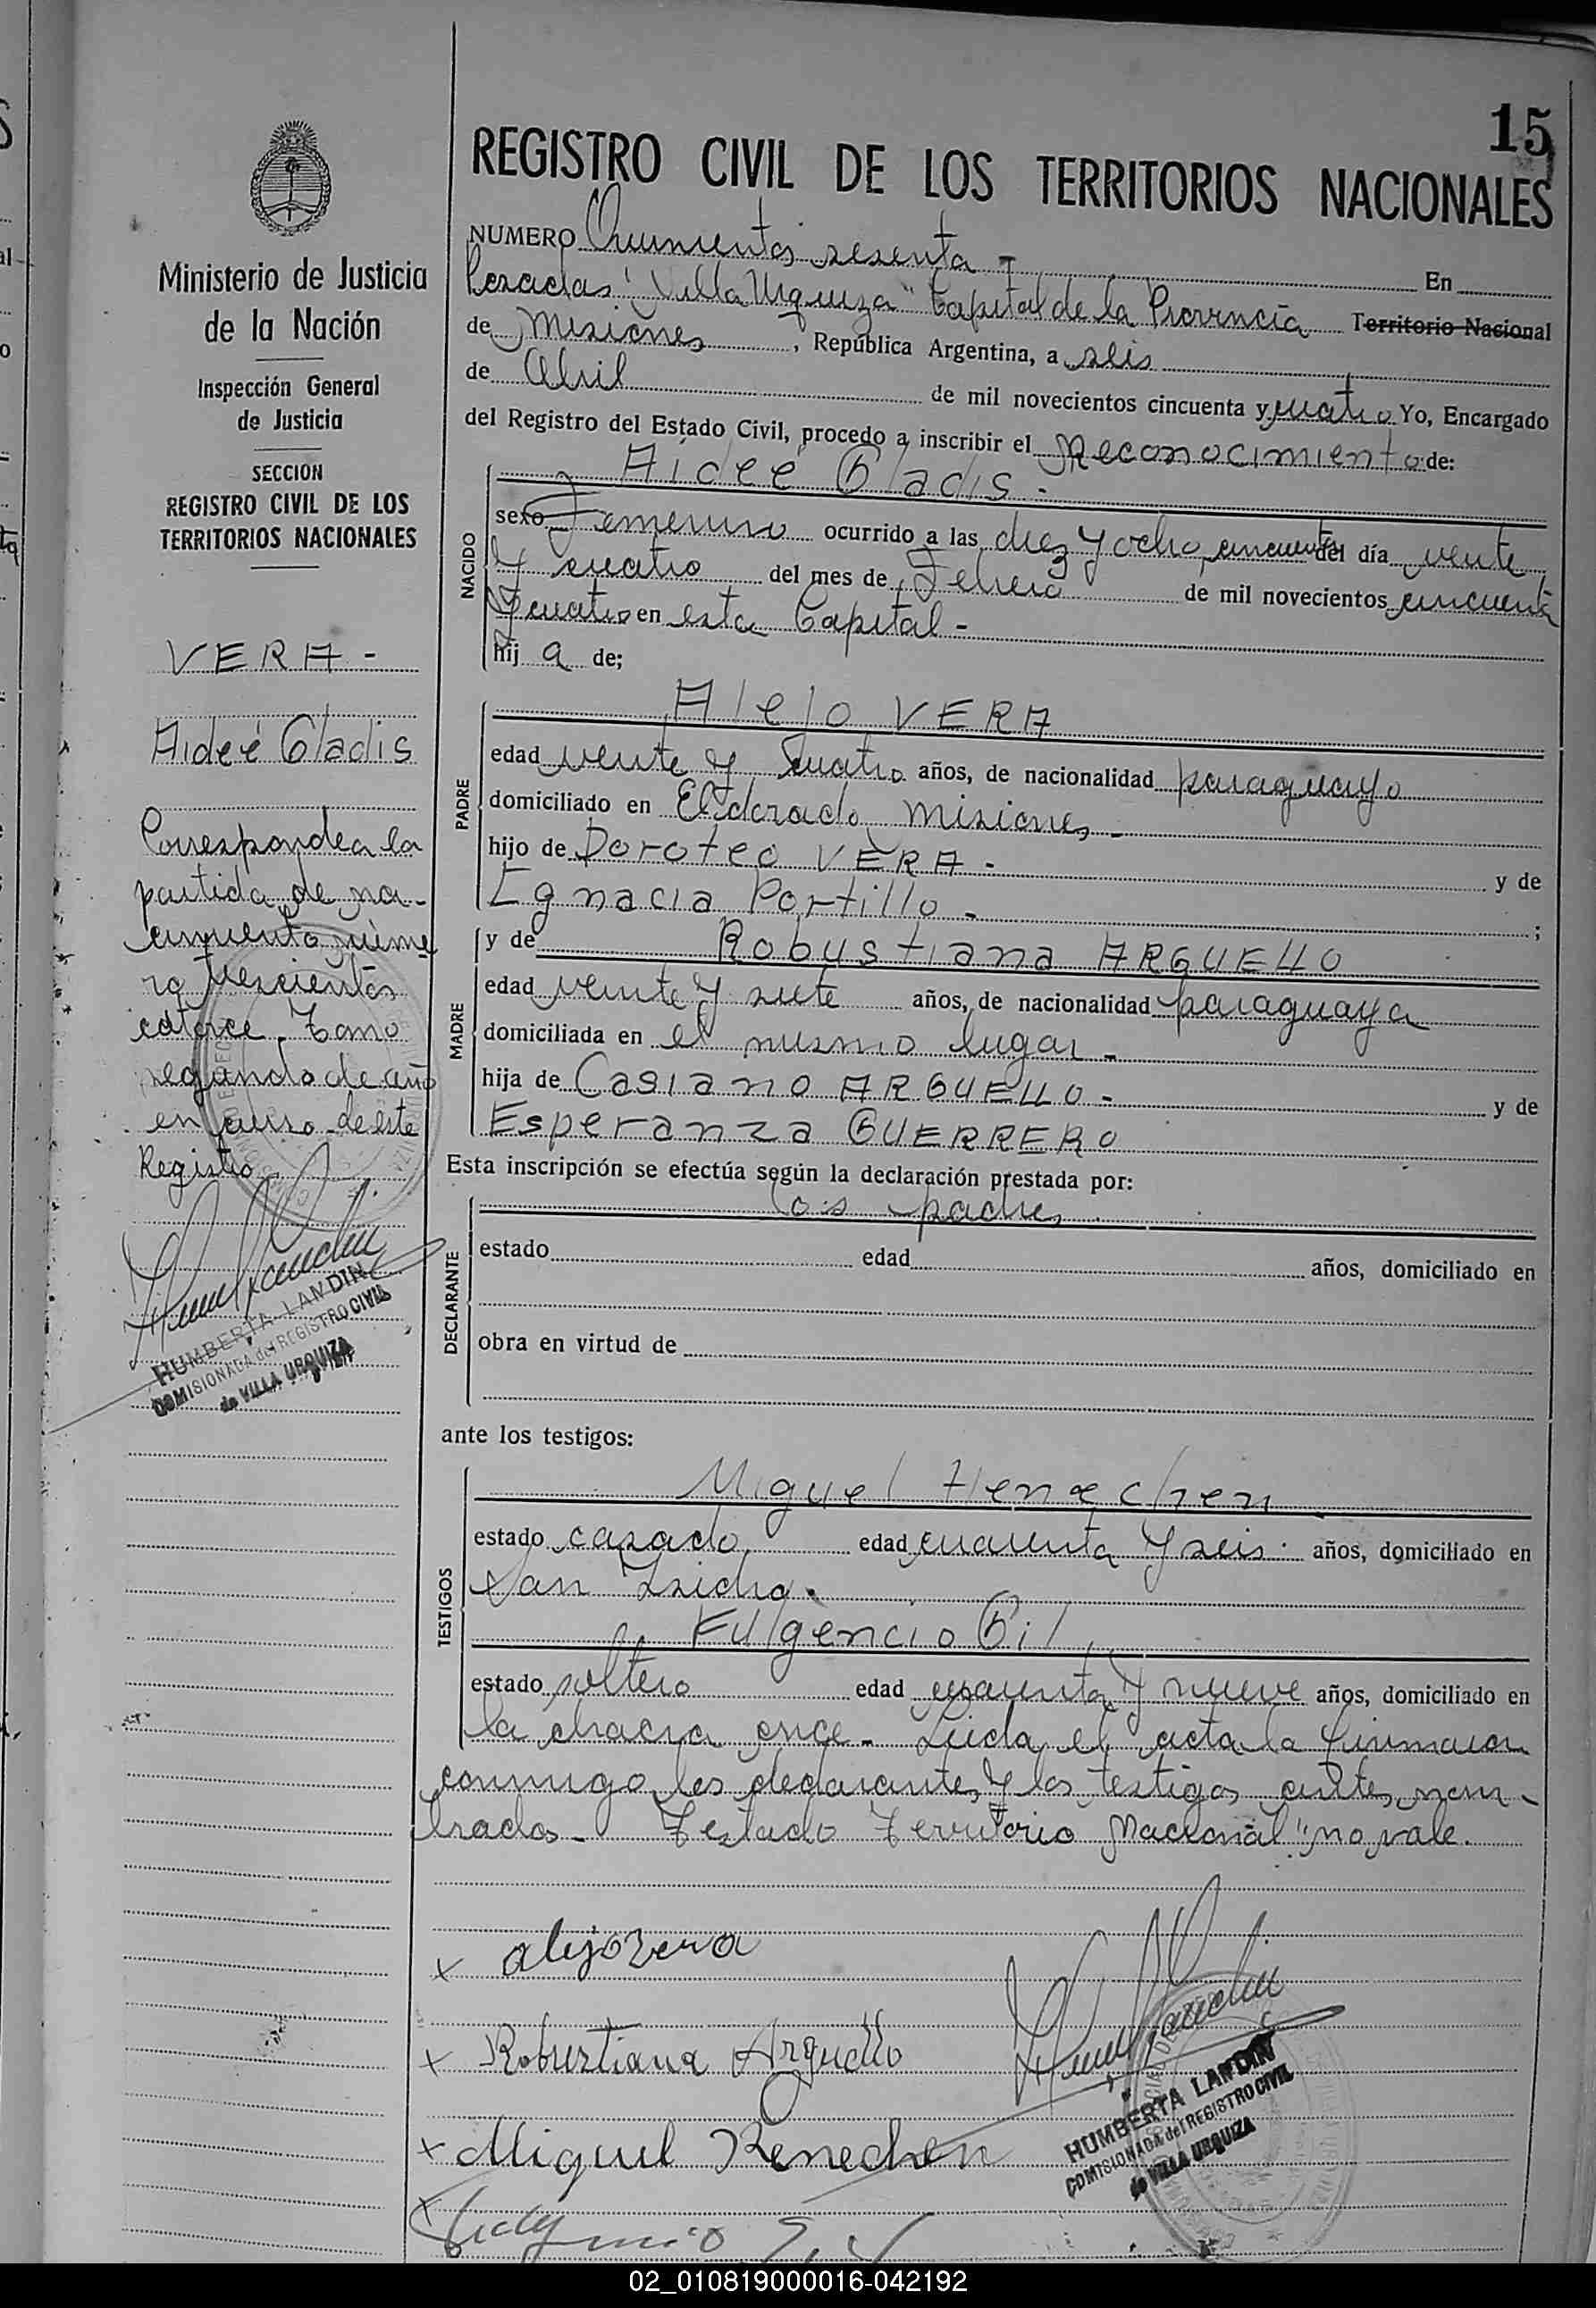 15
REGISTRO CIVIL DE LOS TERRITORIOS NACIONALES
Ministerio de Justicia
de la Nación
Inspección General
de Justicia
SECCION
REGISTRO CIVIL DE LOS
TERRITORIOS NACIONALES
VERA -
Aideé Gladis
Corresponde a la
partida de na-
cimiento núme
ro trescientos
catorce. Tomo
segundo de año
en curso de este
Registro
HUMBERTA LANDIN
COMISIONADA del REGISTRO CIVIL
de VILLA URQUIZA
NUMERO sesenta - En
Posadas "Villa Urquiza" Capital de la Provincia Territorio Nacional
de Misiones, República Argentina, a seis
de Abril de mil novecientos cincuenta y cuatro Yo, Encargado
del Registro del Estado Civil, procedo a inscribir el Reconocimiento de:
NACIDO
Aideé Gladis -
sexo Femenino ocurrido a las diez y ocho cincuenta del día veinte
y cuatro del mes de Febrero de mil novecientos cincuenta
y cuatro en esta Capital -
hij a de;
PADRE
Alejo VERA
edad veinte y cuatro años, de nacionalidad paraguayo
domiciliado en Eldorado, Misiones -
hijo de Doroteo VERA - y de
Egnacia Portillo - ;
MADRE
y de Robustiana ARGUELLO
edad veinte y siete años, de nacionalidad paraguaya
domiciliada en el mismo lugar -
hija de Casiano ARGUELLO - y de
Esperanza GUERRERO
Esta inscripción se efectúa según la declaración prestada por:
DECLARANTE
los padres
estado edad años, domiciliado en
obra en virtud de
ante los testigos:
TESTIGOS
Miguel Henechen
estado casado edad cuarenta y seis años, domiciliado en
San Isidro.
Fulgencio Gil
estado soltero edad cuarenta y nueve años, domiciliado en
la chacra once - Leida el acta la firmaron
conmigo los declarantes y los testigos antes nom-
brados - Testado Territorio Nacional "no vale.
x alejo vera
x Robustiana Arguello
x Miguel Renechen
x
HUMBERTA LANDIN
COMISIONADA del REGISTRO CIVIL
de VILLA URQUIZA
02_010819000016-042192